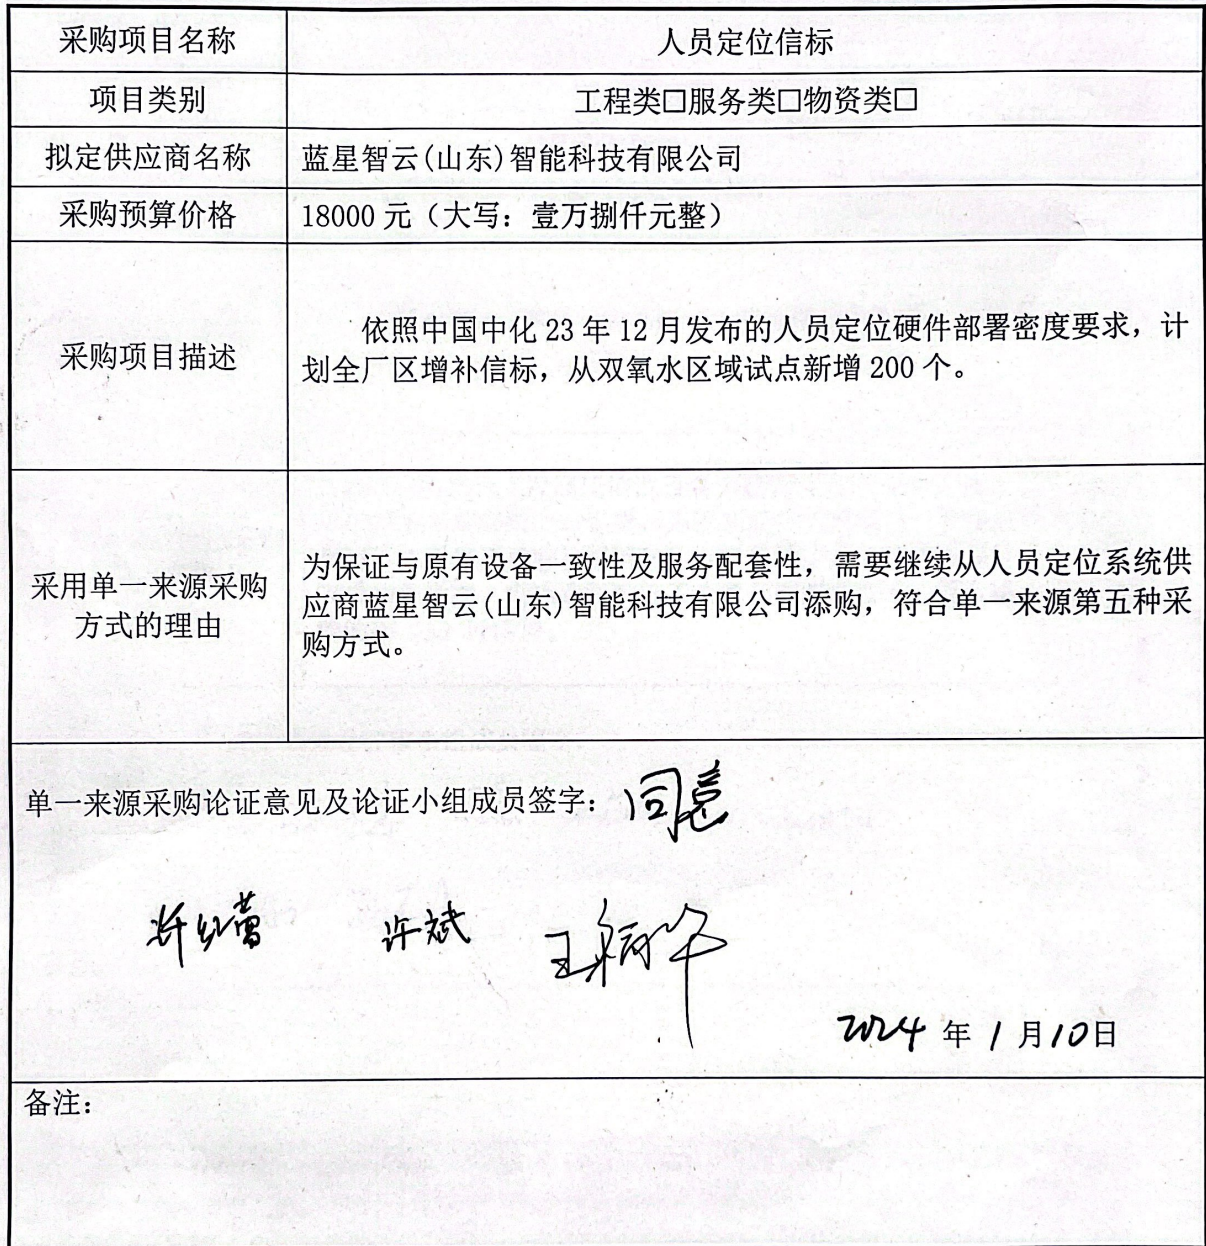 采购项目名称
人员定位信标
项目类别
工程类□服务类□物资类□
拟定供应商名称
蓝星智云(山东)智能科技有限公司
采购预算价格
18000 元（大写：壹万捌仟元整）
采购项目描述
依照中国中化 23 年 12 月发布的人员定位硬件部署密度要求，计
划全厂区增补信标，从双氧水区域试点新增 200 个。
采用单一来源采购
方式的理由
为保证与原有设备一致性及服务配套性，需要继续从人员定位系统供
应商蓝星智云(山东)智能科技有限公司添购，符合单一来源第五种采
购方式。
单一来源采购论证意见及论证小组成员签字：同意
许斌
2024 年 1 月 10 日
备注：